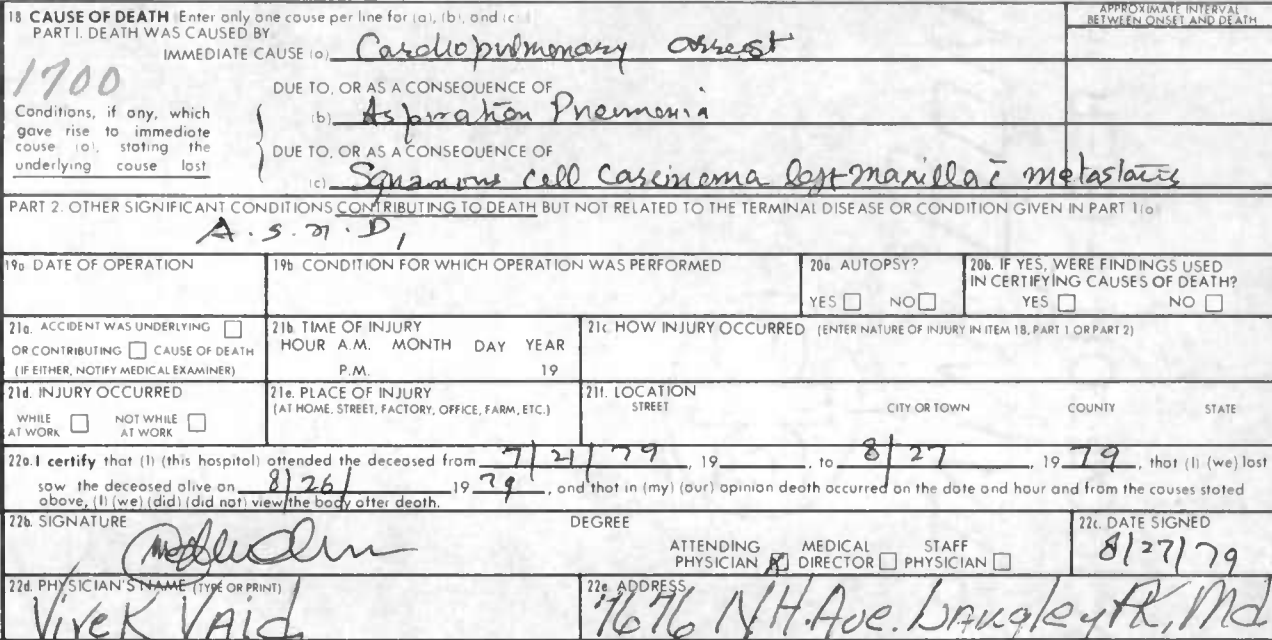 18 CAUSE OF DEATH Enter only one cause per line for (a), (b), and (c)
APPROXIMATE INTERVAL
BETWEEN ONSET AND DEATH
PART I. DEATH WAS CAUSED BY
IMMEDIATE CAUSE (a) Cardiopulmonary arrest
1700
DUE TO, OR AS A CONSEQUENCE OF
Conditions, if any, which
gave rise to immediate
cause (a), stating the
underlying cause last
(b) Aspiration Pneumonia
DUE TO, OR AS A CONSEQUENCE OF
(c) Squamous cell Carcinoma left maxilla c̄ metastasis
PART 2. OTHER SIGNIFICANT CONDITIONS CONTRIBUTING TO DEATH BUT NOT RELATED TO THE TERMINAL DISEASE OR CONDITION GIVEN IN PART 1(a)
19a DATE OF OPERATION
19b CONDITION FOR WHICH OPERATION WAS PERFORMED
20a AUTOPSY?
YES NO
20b. IF YES, WERE FINDINGS USED
IN CERTIFYING CAUSES OF DEATH?
YES NO
21a. ACCIDENT WAS UNDERLYING
OR CONTRIBUTING CAUSE OF DEATH
(IF EITHER, NOTIFY MEDICAL EXAMINER)
21b TIME OF INJURY
HOUR A.M. MONTH DAY YEAR
P.M. 19
21c HOW INJURY OCCURRED (ENTER NATURE OF INJURY IN ITEM 18, PART 1 OR PART 2)
21d. INJURY OCCURRED
WHILE AT WORK NOT WHILE AT WORK
21e. PLACE OF INJURY
(AT HOME, STREET, FACTORY, OFFICE, FARM, ETC.)
21f. LOCATION
STREET CITY OR TOWN COUNTY STATE
22a. I certify that (I) (this hospital) attended the deceased from 7/21/79, 19 , to 8/27 19 79, that (I) (we) last
saw the deceased alive on 8/26/ 19 79, and that in (my) (our) opinion death occurred on the date and hour and from the causes stated
above, (I) (we) (did) (did not) view the body after death.
22b. SIGNATURE
DEGREE
ATTENDING PHYSICIAN X MEDICAL DIRECTOR STAFF PHYSICIAN
22c. DATE SIGNED
8/27/79
22d. PHYSICIAN'S NAME (TYPE OR PRINT)
Vivek Vaid
22e. ADDRESS
7676 N.H. Ave. Langley Pk, Md